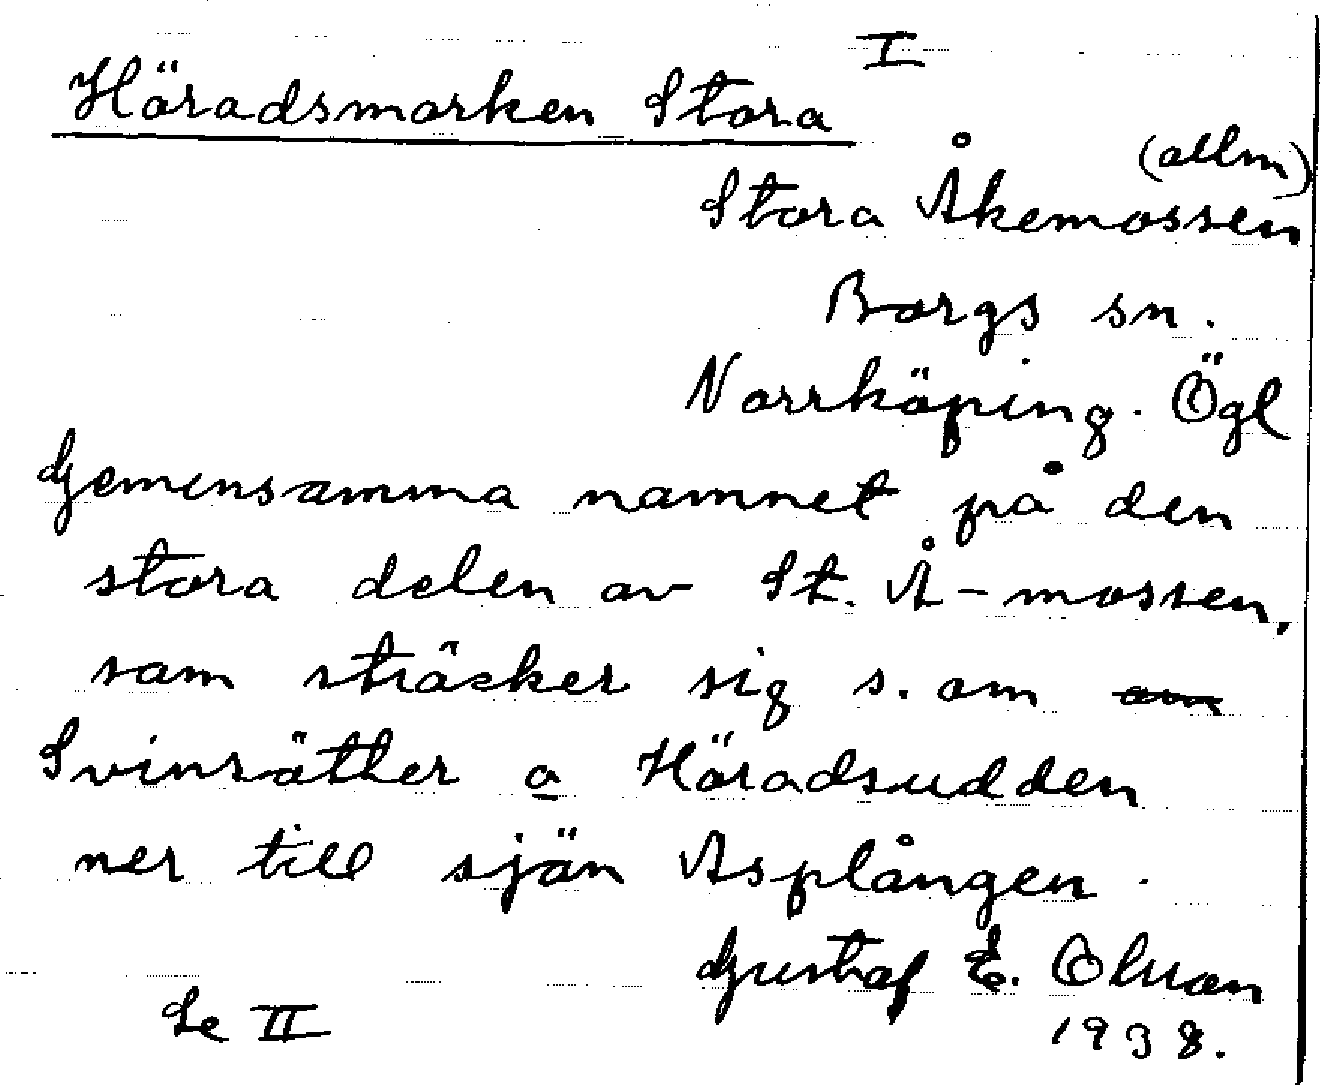 I
Häradsmarken Stora
(allm)
Stora Åkemossen
Borgs sn.
Norrköping. Ögl
Gemensamma namnet på den
stora delen av St. Å-mossen,
som sträcker sig s. om
Svinsätter o Häradsudden
ner till sjön Asplången.
Gustaf E. Olsson
Se II 1938.